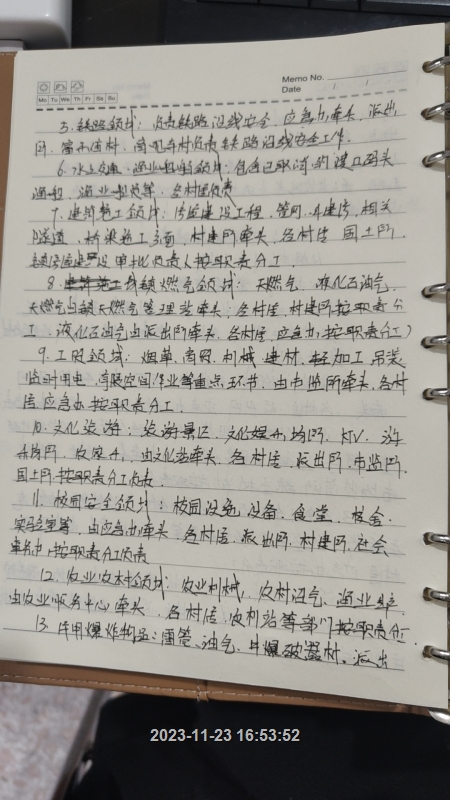 Memo No.
Mo Tu We Th Fr Sa Su
Date / /
5.铁路领域：负责铁路沿线安全，应急办牵头，派出
所、 村负责铁路沿线安全工作。
6.水上交通、渔业船舶领域：包含已取消的渡口码头
渔船、渔业船员等，各村居负责
7.建筑施工领域：房屋建设工程、管网、 相关
隧道、桥梁施工等，村建所牵头，各村居、国土所、
负责人按职责分工
8. 城镇燃气领域：天燃气、液化石油气，
天燃气由 牵头，各村居、村建所按职责分
工，液化石油气由派出所牵头，各村居、应急办按职责分工）
9.工贸领域：烟草、商贸、机械、建材、轻加工、吊装
临时用电、有限空间作业等重点环节，由市监所牵头，各村
居、应急办按职责分工．
10.文化旅游：旅游景区、文化娱乐场所、KTV、游
，由文化站牵头，各村居、派出所、市监所、
国土所按职责分工负责
11.校园安全领域：校园设施、设备、食堂、校舍、
实验室等，由应急办牵头，各村居、派出所、村建所、社会
事务办按职责分工负责
12.农业农村领域：农业机械、农村沼气、渔业生产，
由农业服务中心牵头，各村居、水利站等部门按职责分工
13.民用爆炸物品：雷管、油气、 爆破器材，派出
2023-11-23 16:53:52